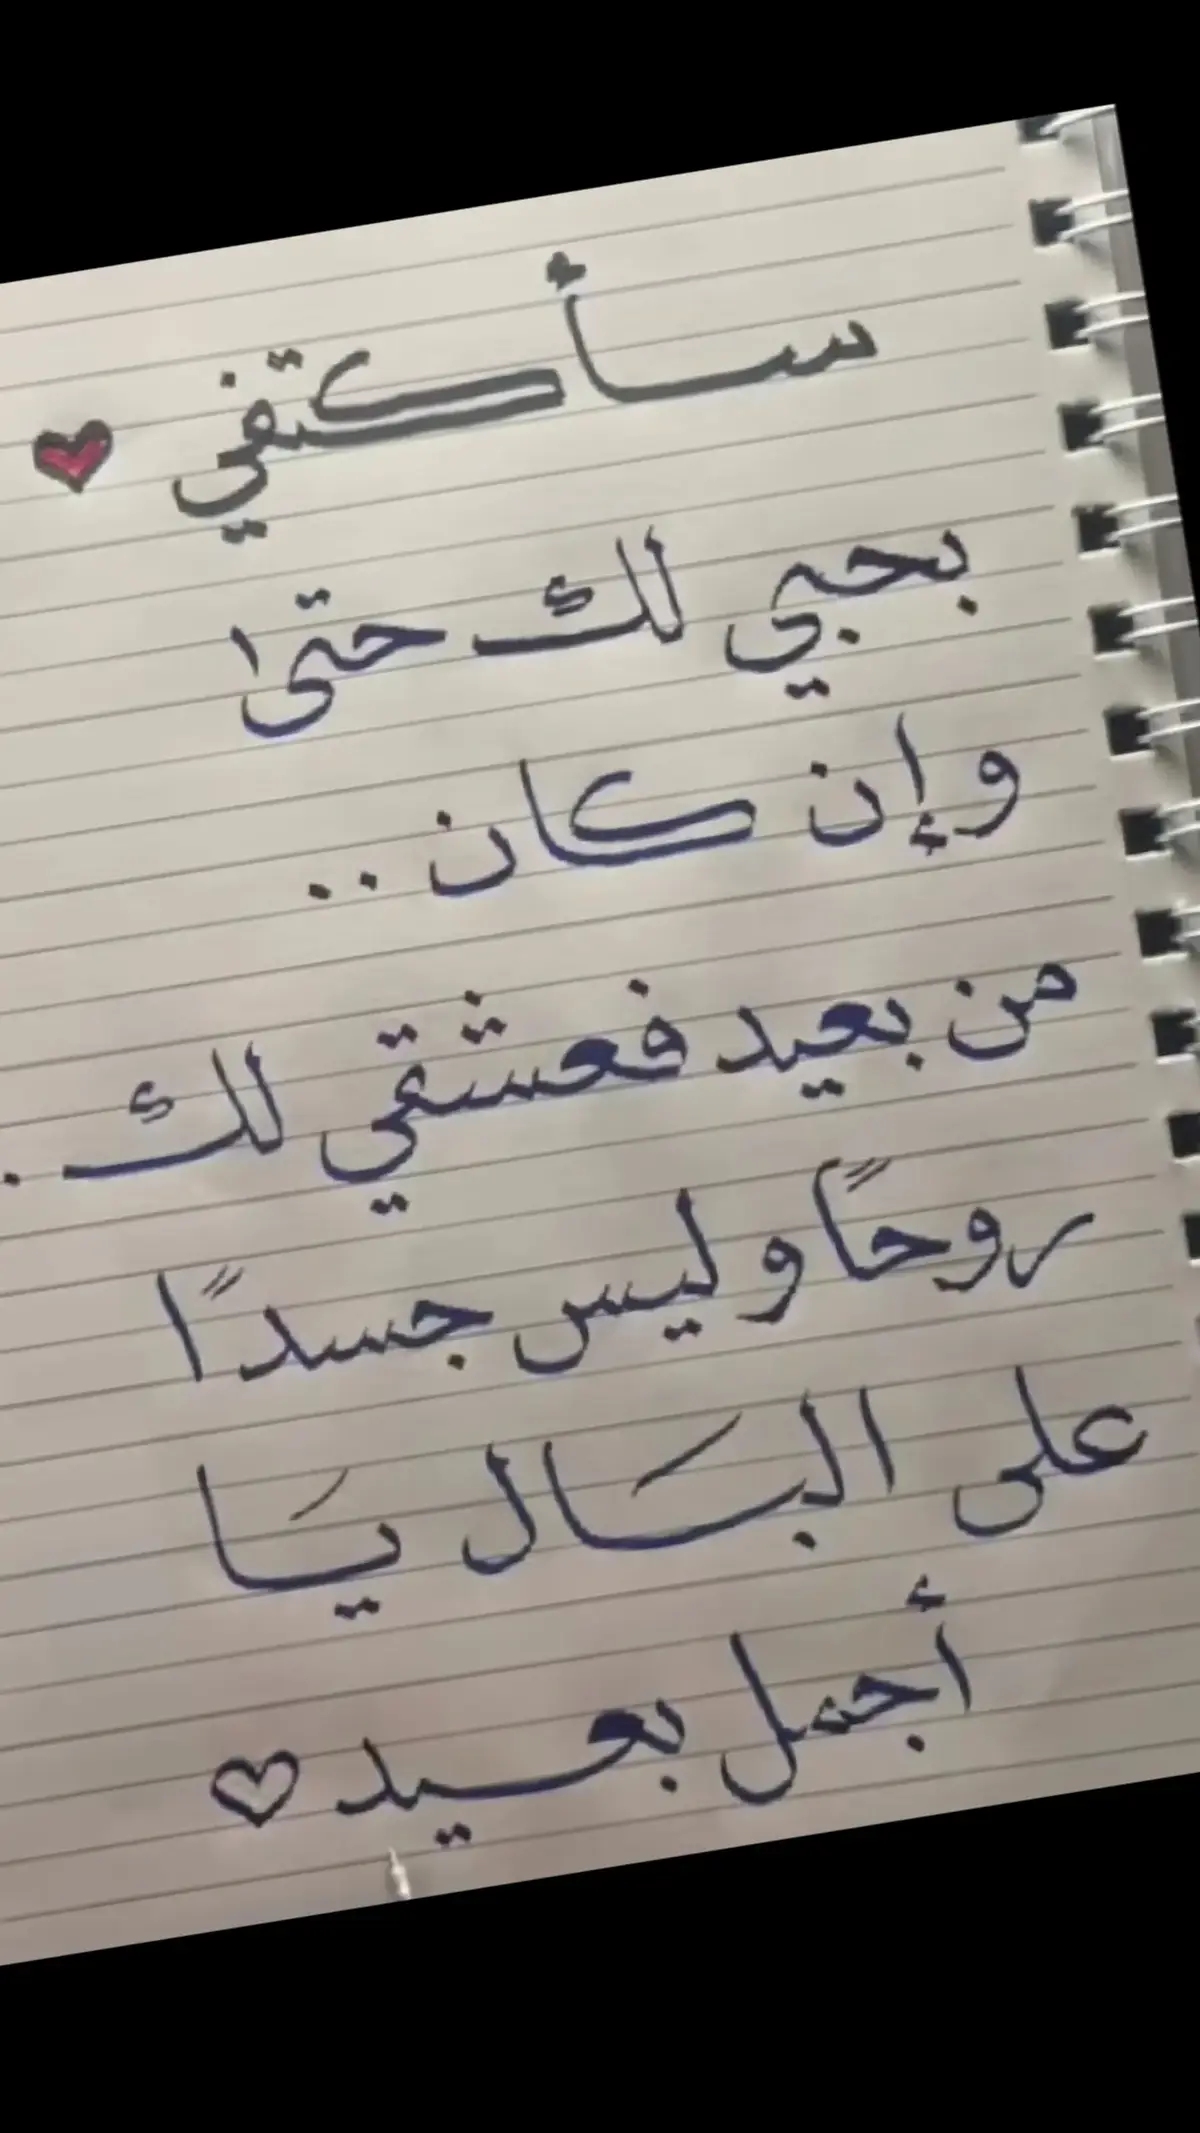 سأكتفي
بحبي لك حتى
وإن كان ..
من بعيد فعشقي لك .
روحًا وليس جسدًا
على البَال يَا
أجمل بعيد